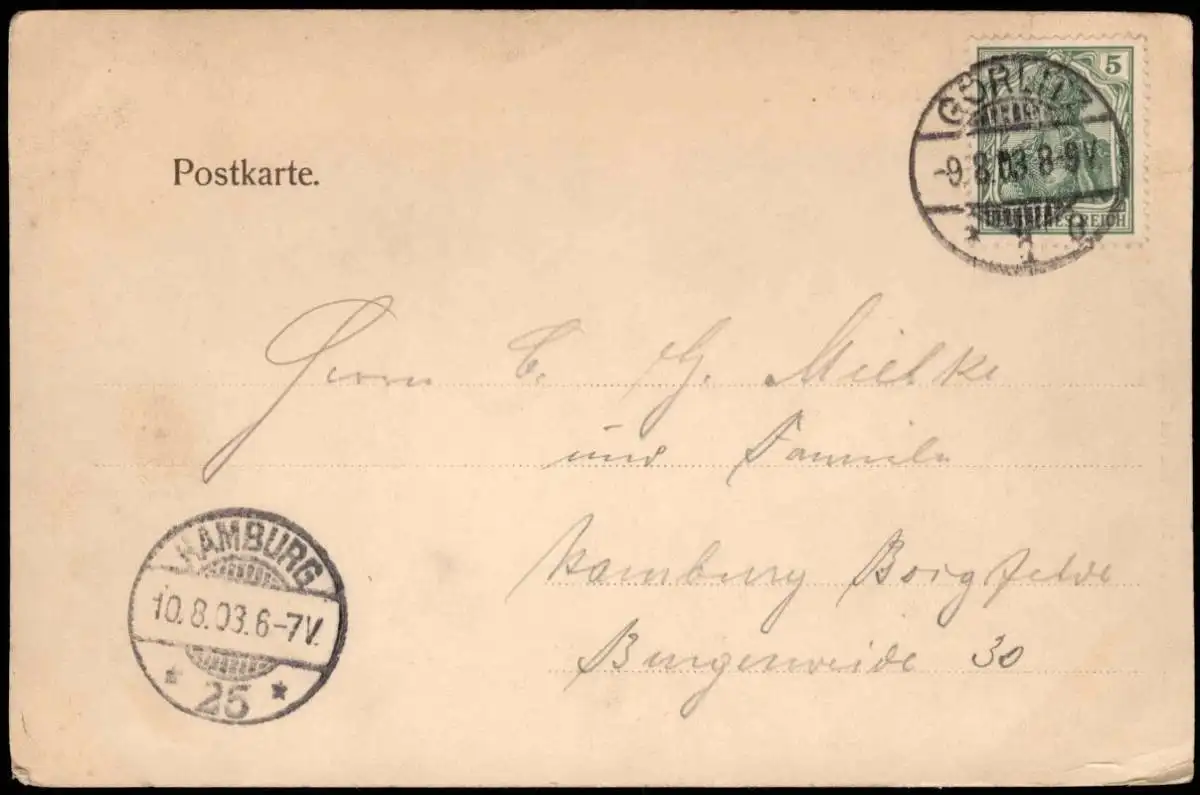 GÖRLITZ
5
-9.8.03.8-9V.
REICH
* 1 g
Postkarte.
Herrn C. G. Mielke
und Familie
Hamburg Borgfelde
Burgenweide 30
HAMBURG
10.8.03.6-7V.
* 25 *